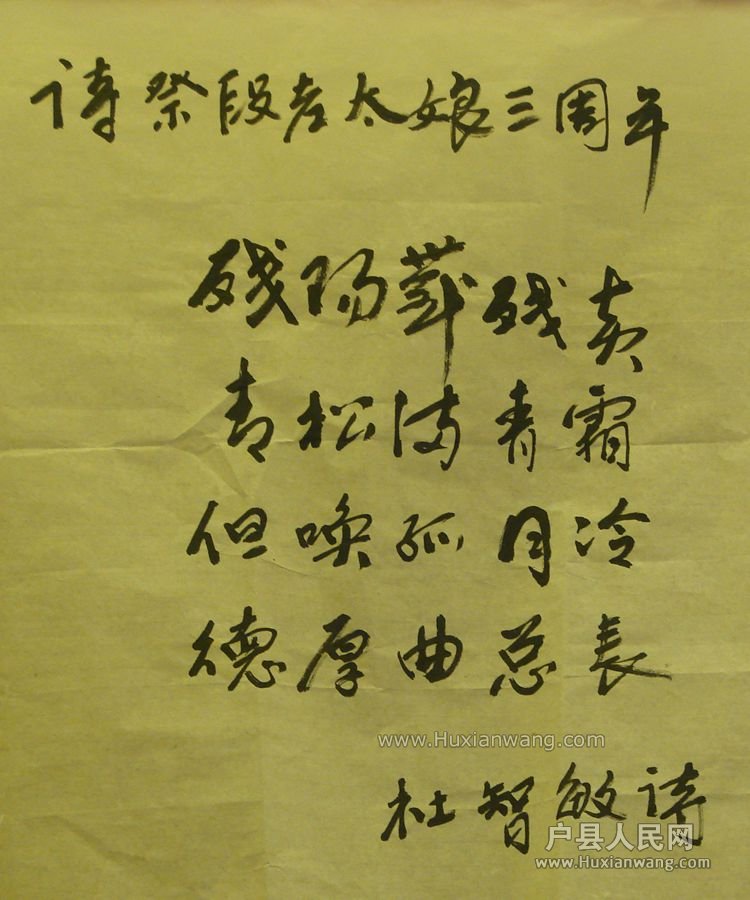 诗祭段老太娘三周年
残阳葬残黄
青松满青霜
但唤孤月冷
德厚曲总长
www.Huxianwang.com
杜智敏
户县人民网
www.Huxianwang.com